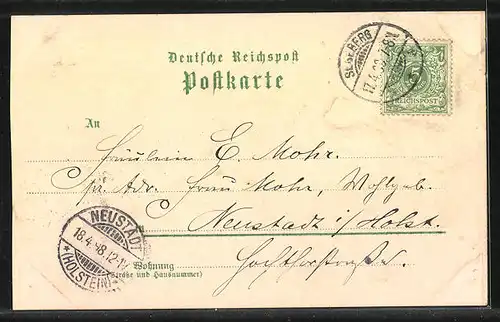 Deutsche Reichspost
Postkarte
SEGEBERG
17.4.98. 7-8V
REICHSPOST
5
An
Fräulein E. Mohr.
pr. Adr. Frau Mohr, Wohlgeb.
Neustadt i/Holst.
NEUSTADT
18.4.98.12-1V
*(HOLSTEIN)*
Wohnung
(Straße und Hausnummer)